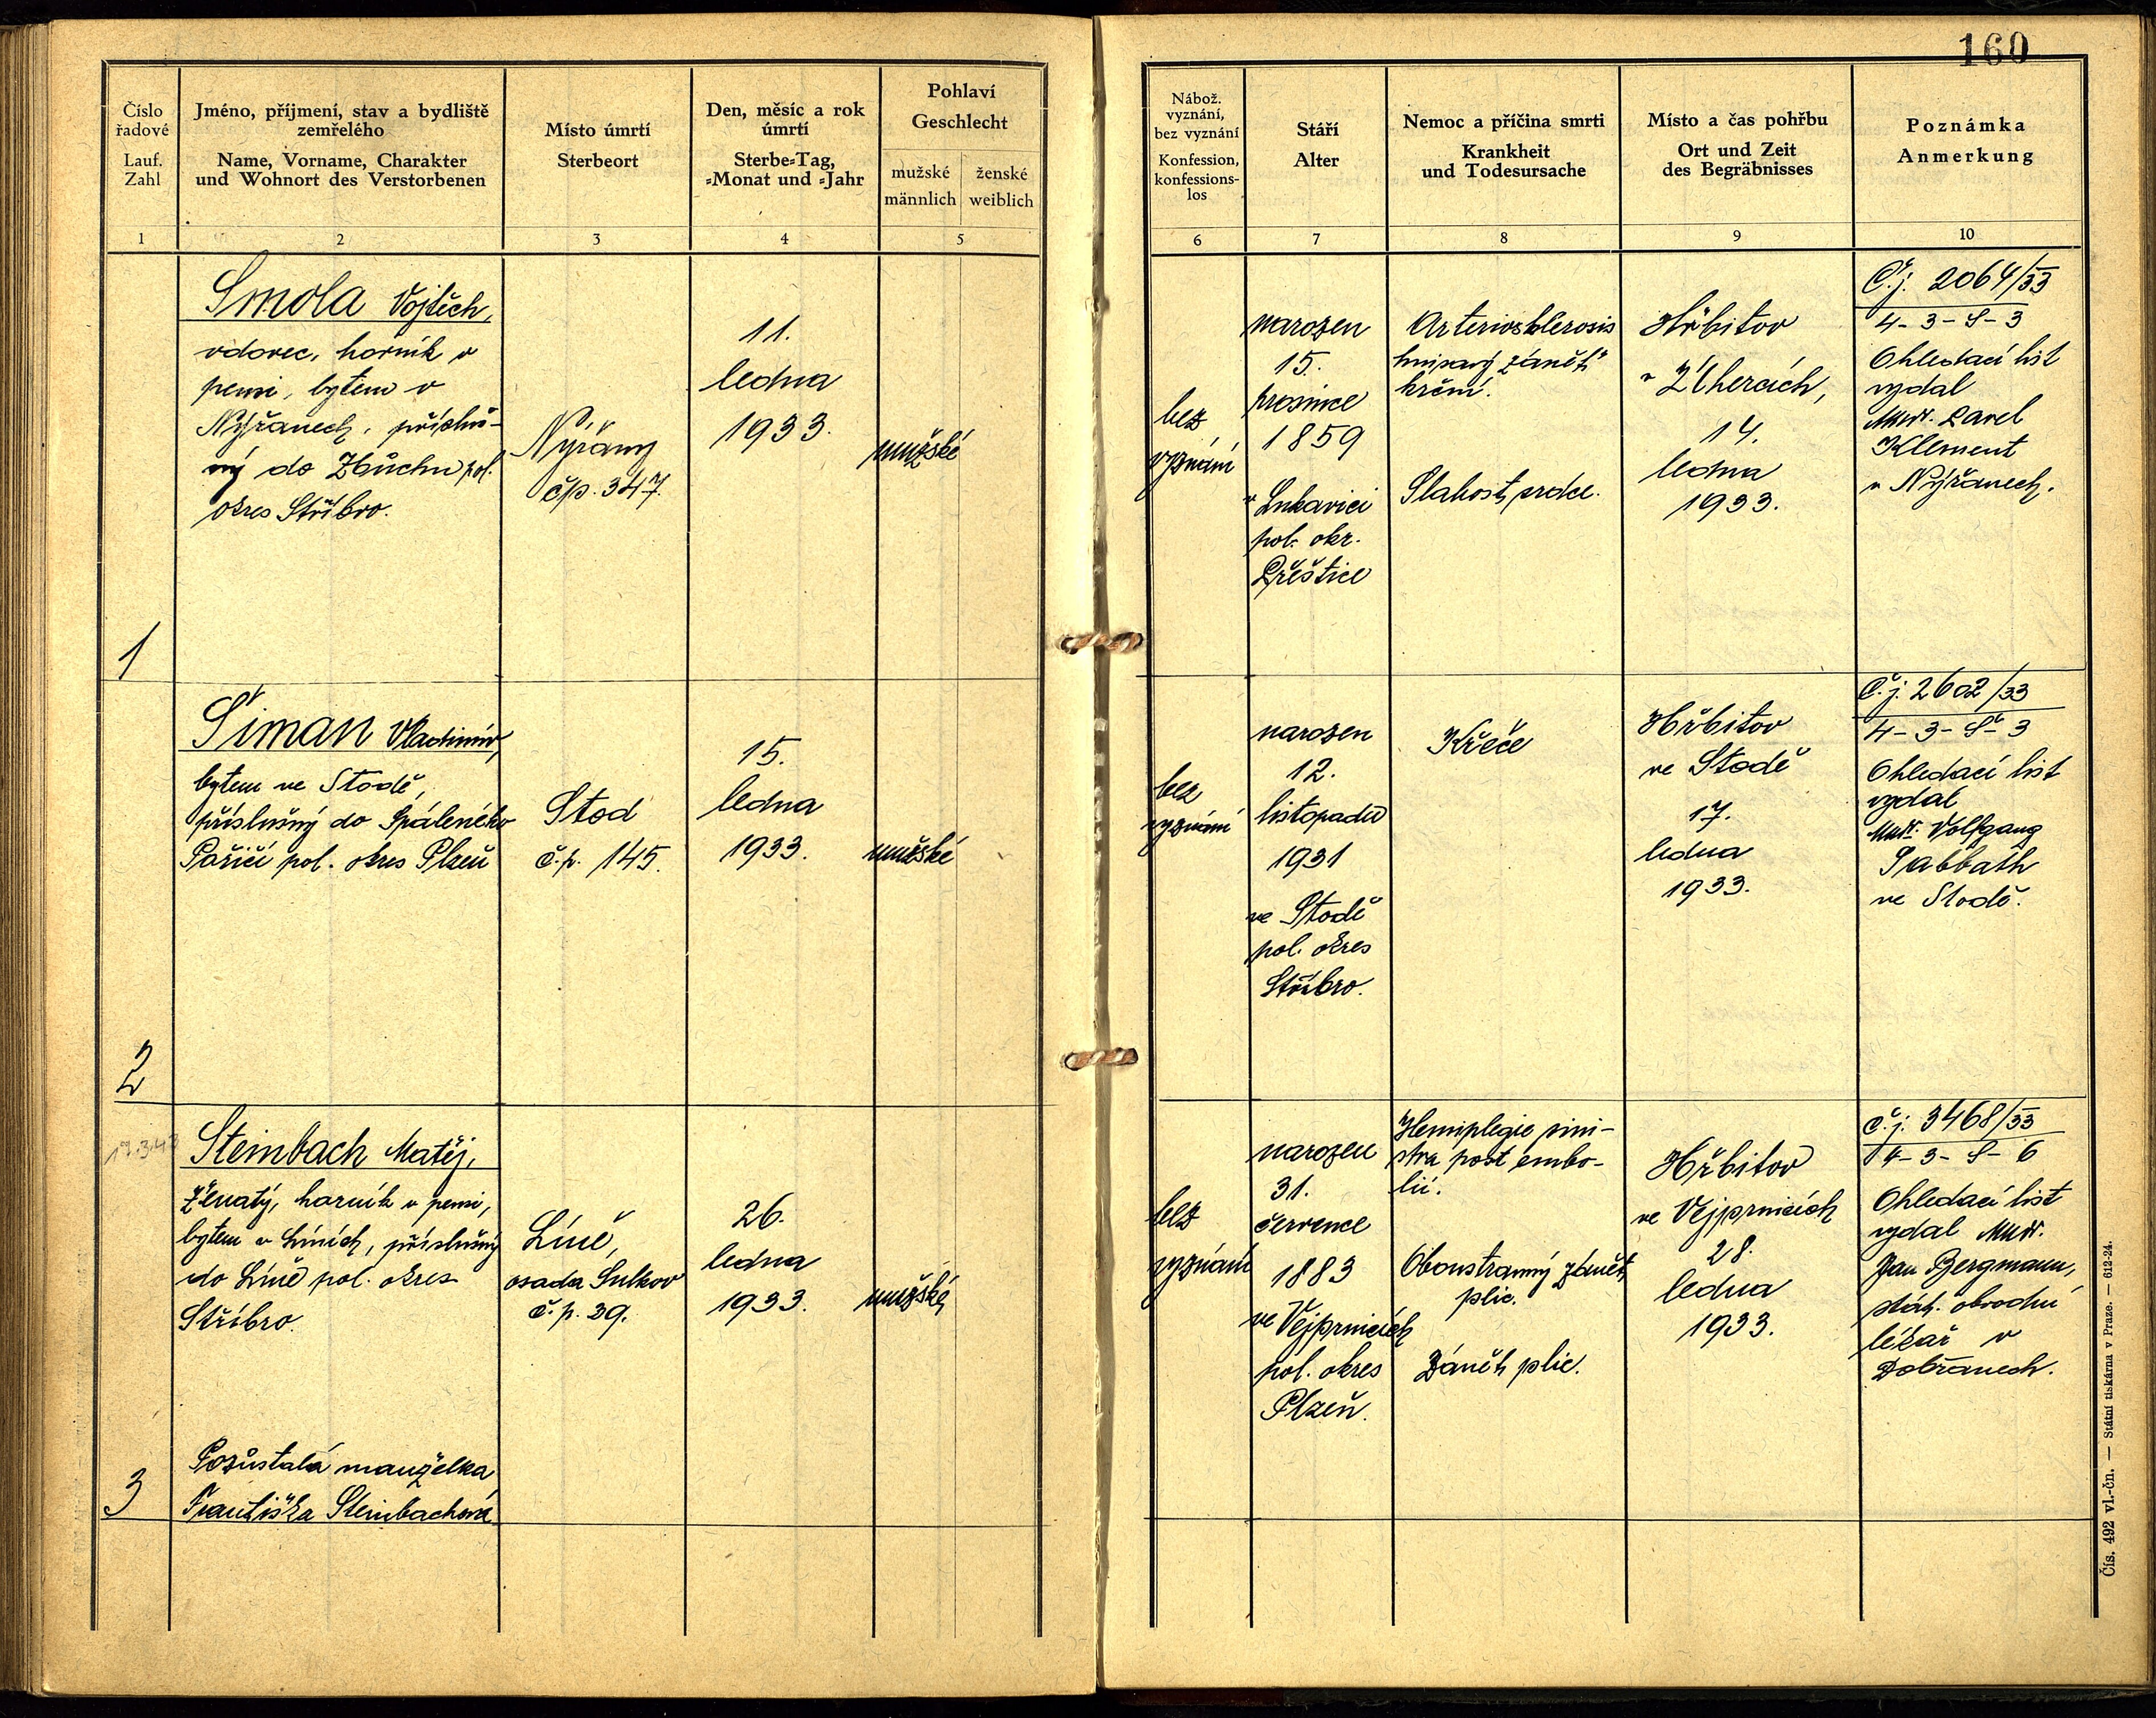 160
Číslo
řadové
Lauf.
Zahl
Jméno, příjmení, stav a bydliště
zemřelého
Name, Vorname, Charakter
und Wohnort des Verstorbenen
Místo úmrtí
Sterbeort
Den, měsíc a rok
úmrtí
Sterbe-Tag,
-Monat und -Jahr
Pohlaví
Geschlecht
mužské
männlich
ženské
weiblich
Nábož.
vyznání,
bez vyznání
Konfession,
konfessions-
los
Stáří
Alter
Nemoc a příčina smrti
Krankheit
und Todesursache
Místo a čas pohřbu
Ort und Zeit
des Begräbnisses
Poznámka
Anmerkung
1 2 3 4 5 6 7 8 9 10
1
Smola Vojtěch,
vdovec, horník v
pensi, bytem v
Nýřanech, přísluš-
ný do Zbůchu pol.
okres Stříbro.
Nýřany
č.p. 347.
11.
ledna
1933.
mužské
bez
vyznání
narozen
15.
prosince
1859
v Lukavici
pol. okr.
Přeštice
Arteriosklerosis
hnisavý zánět
krční.
Slabost srdce.
Hřbitov
v Zťhercích,
14.
ledna
1933.
Č.j. 2064/33
4-3-S-3
Ohledací list
vydal
MUDr. Pavel
Klement
v Nýřanech.
2
Šiman Vladimír,
bytem ve Stodě,
příslušný do Spáleného
Poříčí pol. okres Plzeň
Stod
č.p. 145.
15.
ledna
1933.
mužské
bez
vyznání
narozen
12.
listopadu
1931
ve Stodě
pol. okres
Stříbro.
Křeče
Hřbitov
ve Stodě
17.
ledna
1933.
Č.j. 2602/33
4-3-Š-3
Ohledací list
vydal
MUDr. Volfgang
Sabbath
ve Stodě.
3
Steinbach Matěj,
ženatý, horník v pensi,
bytem v Líních, příslušný
do Líně pol. okres
Stříbro.
Pozůstalá manželka
Františka Steinbachová
Líně,
osada Sulkov
č.p. 39.
26.
ledna
1933.
mužské
bez
vyznání
narozen
31.
července
1883
ve Vejprnicích
pol. okres
Plzeň.
Hemiplegie sini-
stra post embo-
lii.
Oboustranný zánět
plic.
Zánět plic.
Hřbitov
ve Vejprnicích
28.
ledna
1933.
Č.j. 3468/33
4-3-S-6
Ohledací list
vydal MUDr.
Jan Bergmann,
stát. obvodní
lékař v
Dobřanech.
Čís. 492 vl.-čn. — Státní tiskárna v Praze. — 612-24.